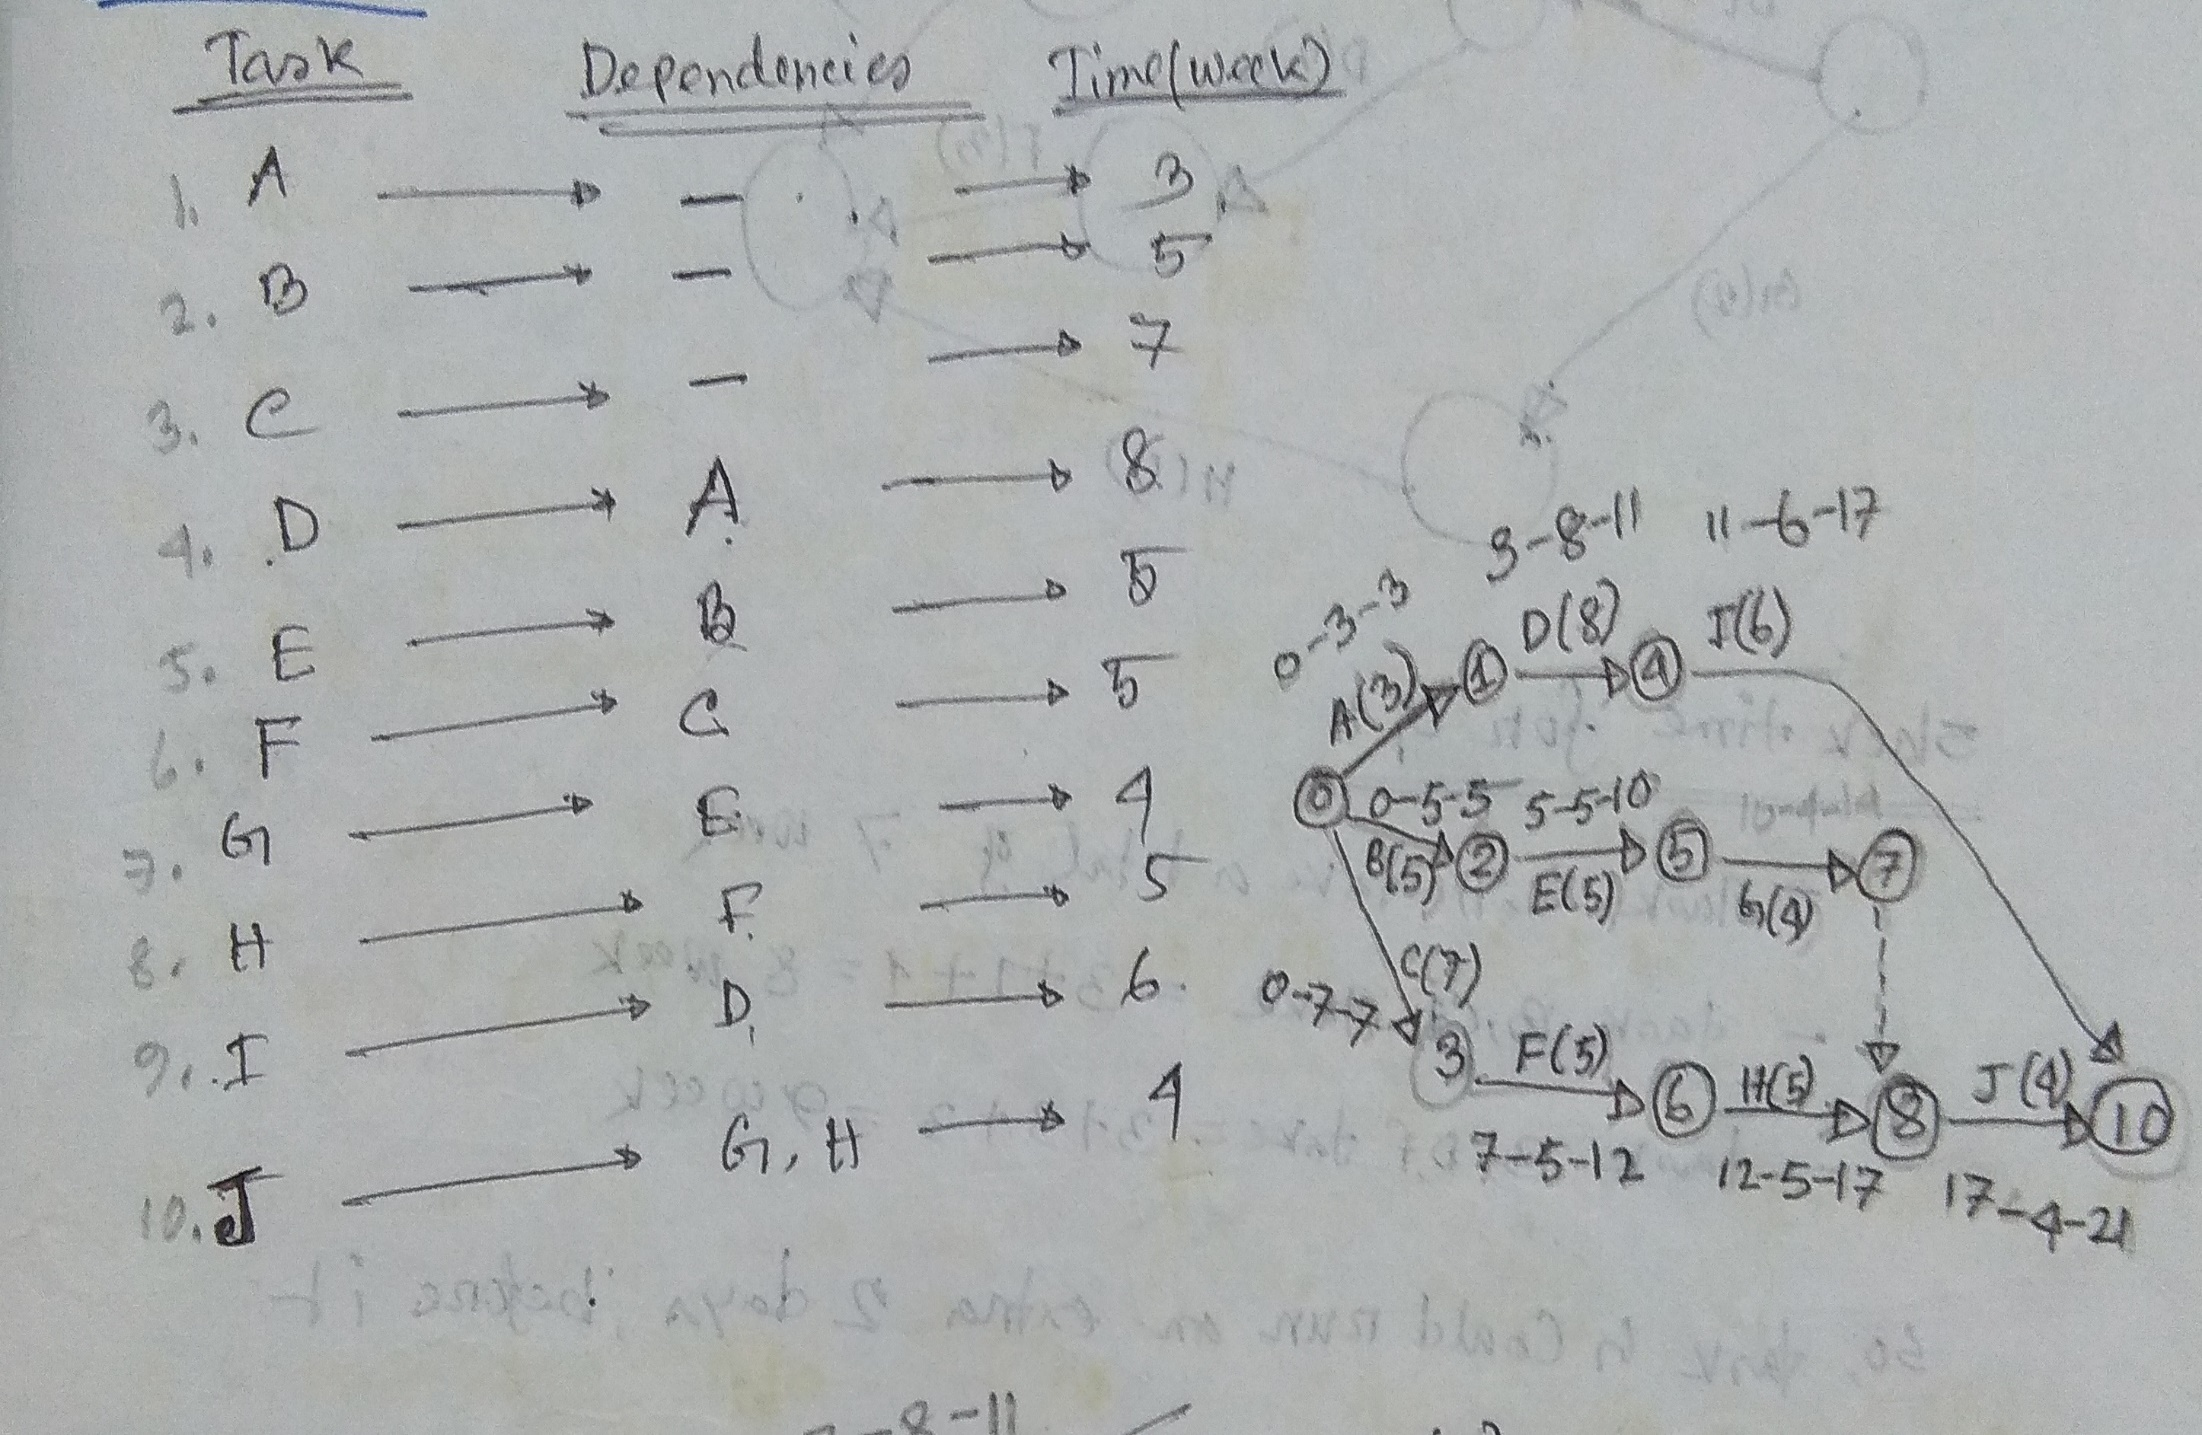 Task Dependencies Time(week)
1. A → - → 3
2. B → - → 5
3. C → - → 7
4. D → A → 8
5. E → B → 5
6. F → C → 5
7. G → E → 4
8. H → F → 5
9. I → D → 6
10. J → G, H → 4
3-8-11 11-6-17
0-3-3 D(8) I(6)
A(3) 1 4
0 0-5-5 5-5-10
B(5) 2 E(5) 5 G(4) 7
C(7)
0-7-7
3 F(5) 6 H(5) 8 J(4) 10
7-5-12 12-5-17 17-4-21
-8-11